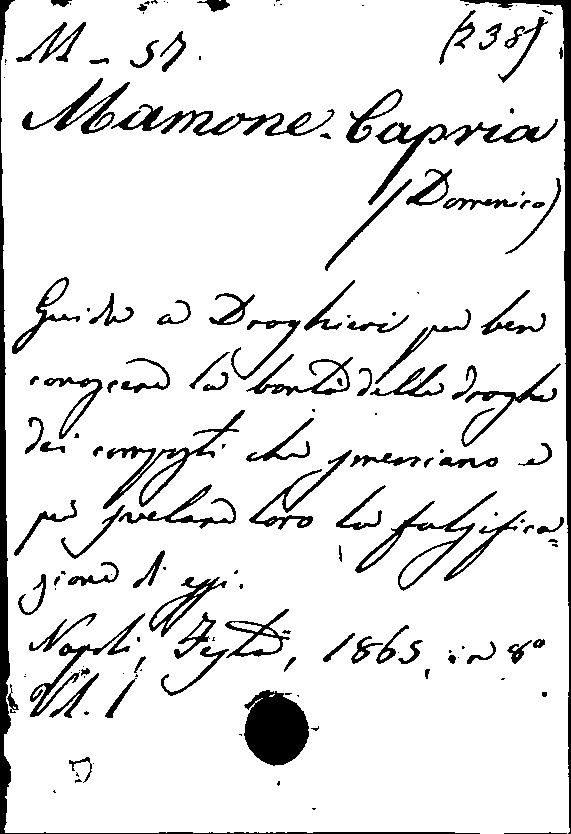 M - 57. (238)
Mamone-Capria
(Domenico)
Guida a Droghieri per ben
conoscere la bontà delle droghe
dei composti che smerciano e
per svelare loro la falsifica=
zione di essi.
Napoli, 1865, in 8º
Vol. 1